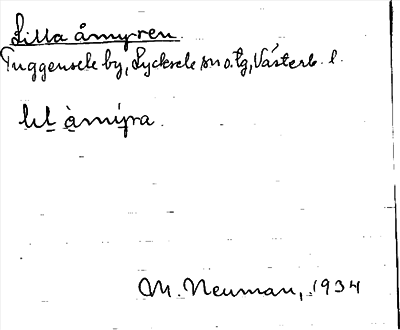 Lilla åmyren.
Tuggensele by, Lycksele sn o. tg, Västerb. l.
lıl àmẏra.
M. Neuman, 1934